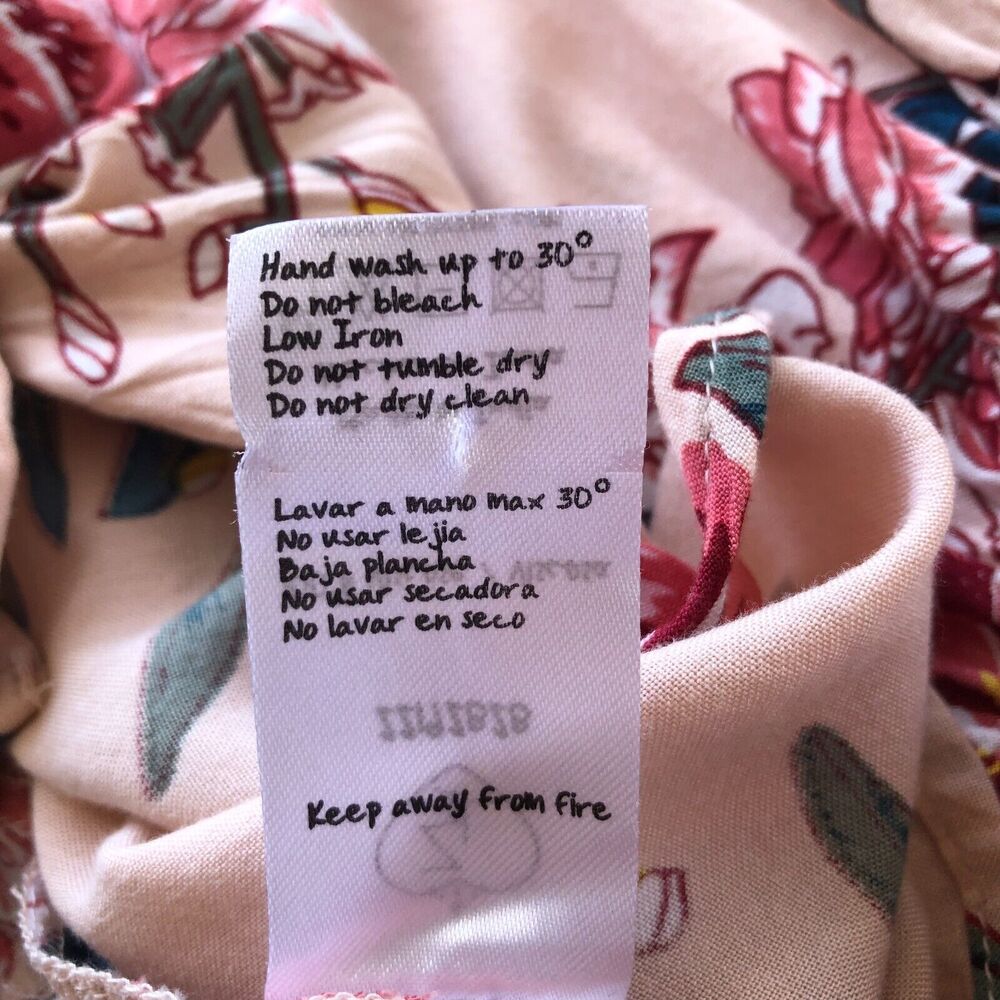 Hand wash up to 30°
Do not bleach
Low Iron
Do not tumble dry
Do not dry clean
Lavar a mano max 30°
No usar lejia
Baja plancha
No usar secadora
No lavar en seco
Keep away from fire